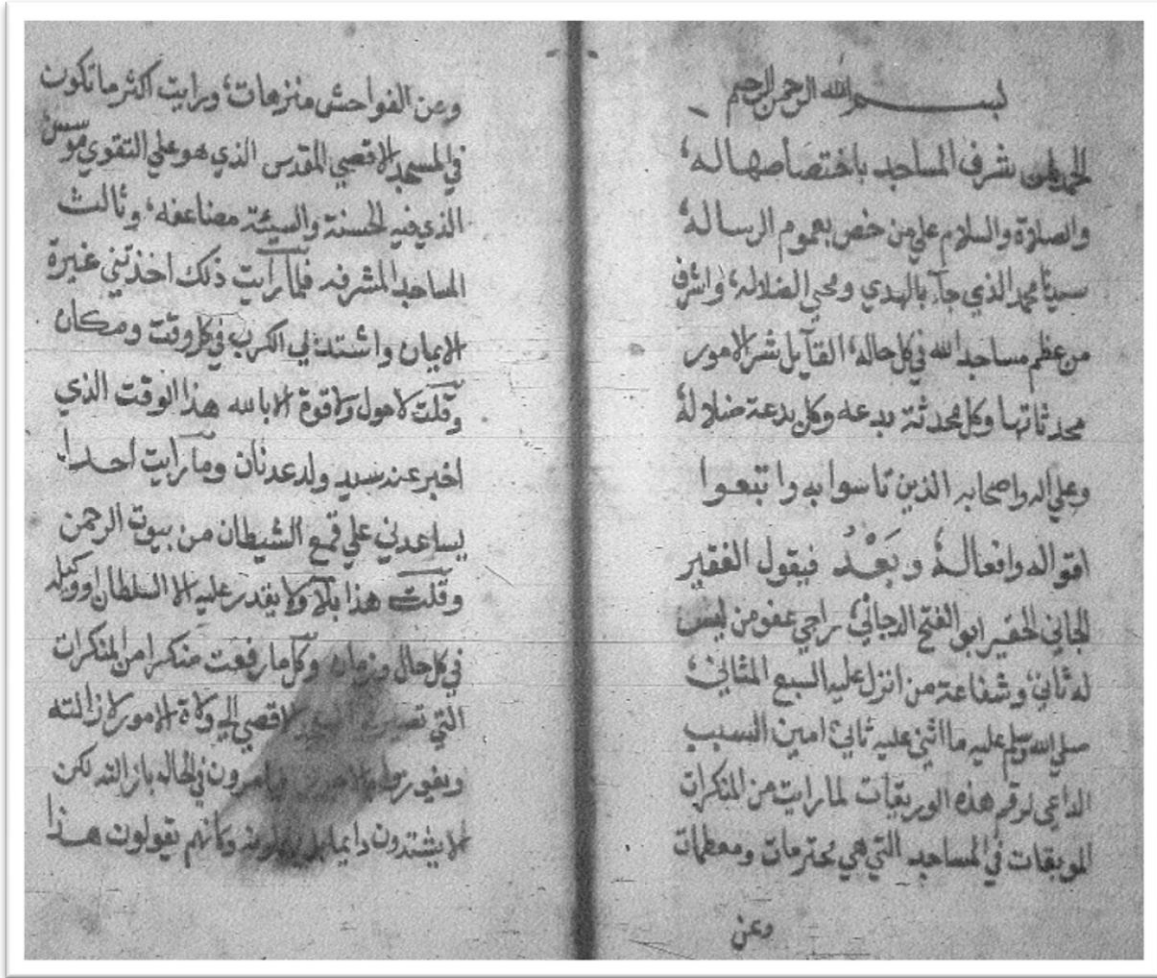 بسم الله الرحمن الرحيم
الحمد لمن شرف المساجد باختصاصها له،
والصلاة والسلام علي من خص بعموم الرساله،
سيدنا محمد الذي جآء بالهدي ومحي الضلاله، واشرف
من عظم مساجد الله في كل حاله، القآيل شر الامور
محدثاتها وكل محدثة بدعه وكل بدعة ضلالة
وعلي اله واصحابه الذين تاسوا به واتبعوا
اقواله وافعاله، وَبَعْدُ فيقول الفقير
الجاني الحقير ابو الفتح الدجاني، راجي عفو من ليس
له ثاني، وشفاعة من انزل عليه السبع المثاني،
صلي الله وسلم عليه ما اثني عليه ثاني امين السبب
الداعي لرقم هذه الوريقات لما رايت من المنكرات
الموبقات في المساجد التي هي محترمات ومعظمات
وعن
وعن الفواحش منزهات، ورايت اكثر ما تكون
في المسجد الاقصي المقدس الذي هو علي التقوي موسس
الذي فيه الحسنة والسيئة مضاعفه، وثالث
المساجد المشرفه فلما رايت ذلك اخذتني غيرة
الايمان واشتد لي الكرب في كل وقت ومكان
وقلت لاحول ولاقوة الا بالله هذا الوقت الذي
اخبر عنه سيد ولد عدنان وما رايت احدا
يساعدني علي قمع الشيطان من بيوت الرحمن
وقلت هذا بلآء لا يقدر عليه الا السلطان او وكيله
في كل حال وزمان وكل ما رفعت منكرا من المنكرات
التي الاقصي الي ولاة الامور لازالته
في الحاله بازالته لكن
لا يشتدون دايما وكانهم يقولون هذا